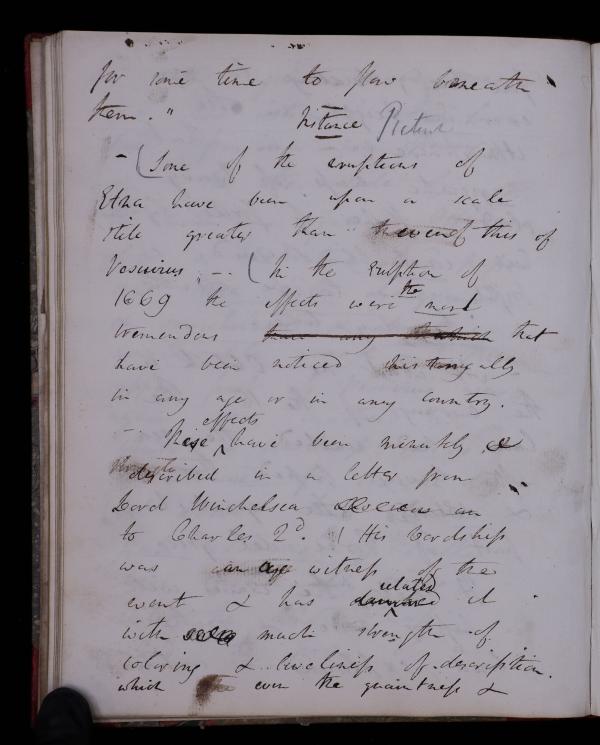 for some time to flow beneath
them."
Instance Picture
- (Some of the eruptions of
Etna have been upon a scale
still greater than even of this of
Vesuvius - - ( In the eruption of
1669 the effects were the most
tremendous than any that
have been noticed historically
in any age or in any country.
- These effects have been minutely &
described in a letter from
Lord Winchelsea an
to Charles 2d. ( His Lordship
was an eye witness of the
event & has related it
with much strength of
coloring & liveliness of description.
which even the quaintness &